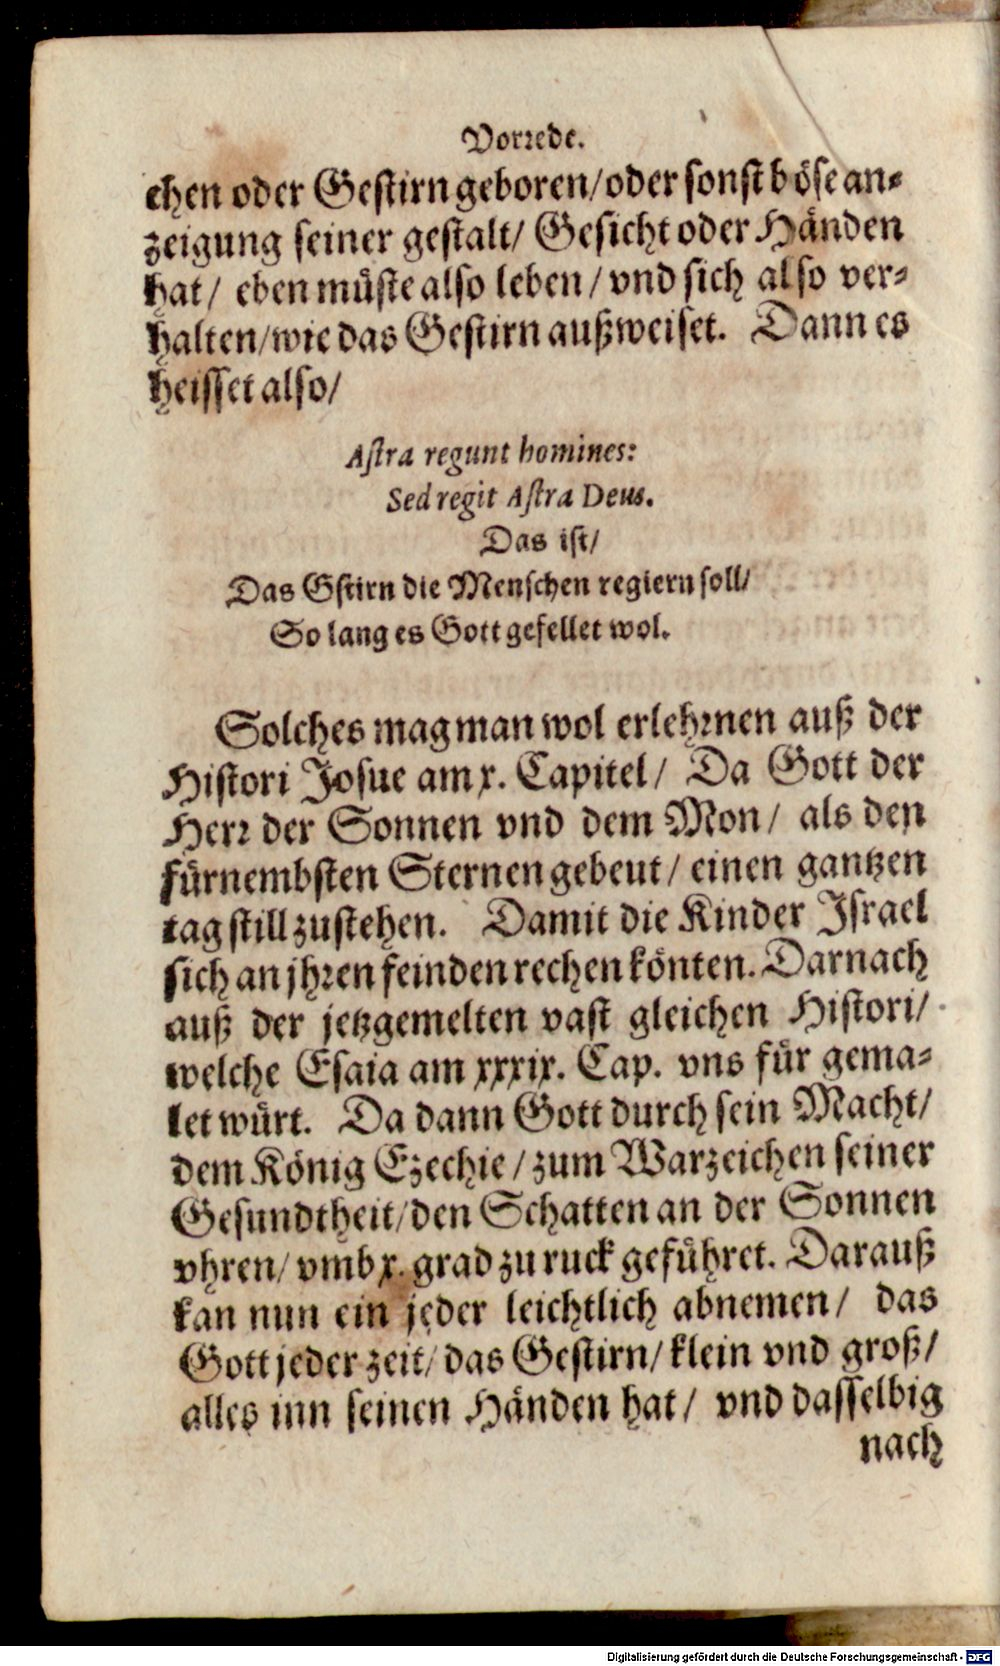 Vorrede.
chen oder Gestirn geboren/ oder sonst böse an-
zeigung seiner gestalt/ Gesicht oder Händen
hat/ eben müste also leben/ vnd sich also ver-
halten/ wie das Gestirn außweiset. Dann es
heisset also/
Astra regunt homines:
Sed regit Astra Deus.
Das ist/
Das Gstirn die Menschen regiern soll/
So lang es Gott gefellet wol.
Solches mag man wol erlehrnen auß der
Histori Josue am x. Capitel/ Da Gott der
Herr der Sonnen vnd dem Mon/ als den
fürnembsten Sternen gebeut/ einen gantzen
tag still zustehen. Damit die Kinder Israel
sich an jhren feinden rechen könten. Darnach
auß der jetzgemelten vast gleichen Histori/
welche Esaia am xxxix. Cap. vns für gema-
let würt. Da dann Gott durch sein Macht/
dem König Ezechie/ zum Warzeichen seiner
Gesundtheit/ den Schatten an der Sonnen
vhren/ vmb x. grad zu ruck geführet. Darauß
kan nun ein jeder leichtlich abnemen/ das
Gott jeder zeit/ das Gestirn/ klein vnd groß/
alles inn seinen Händen hat/ vnd dasselbig
nach
Digitalisierung gefördert durch die Deutsche Forschungsgemeinschaft - DFG